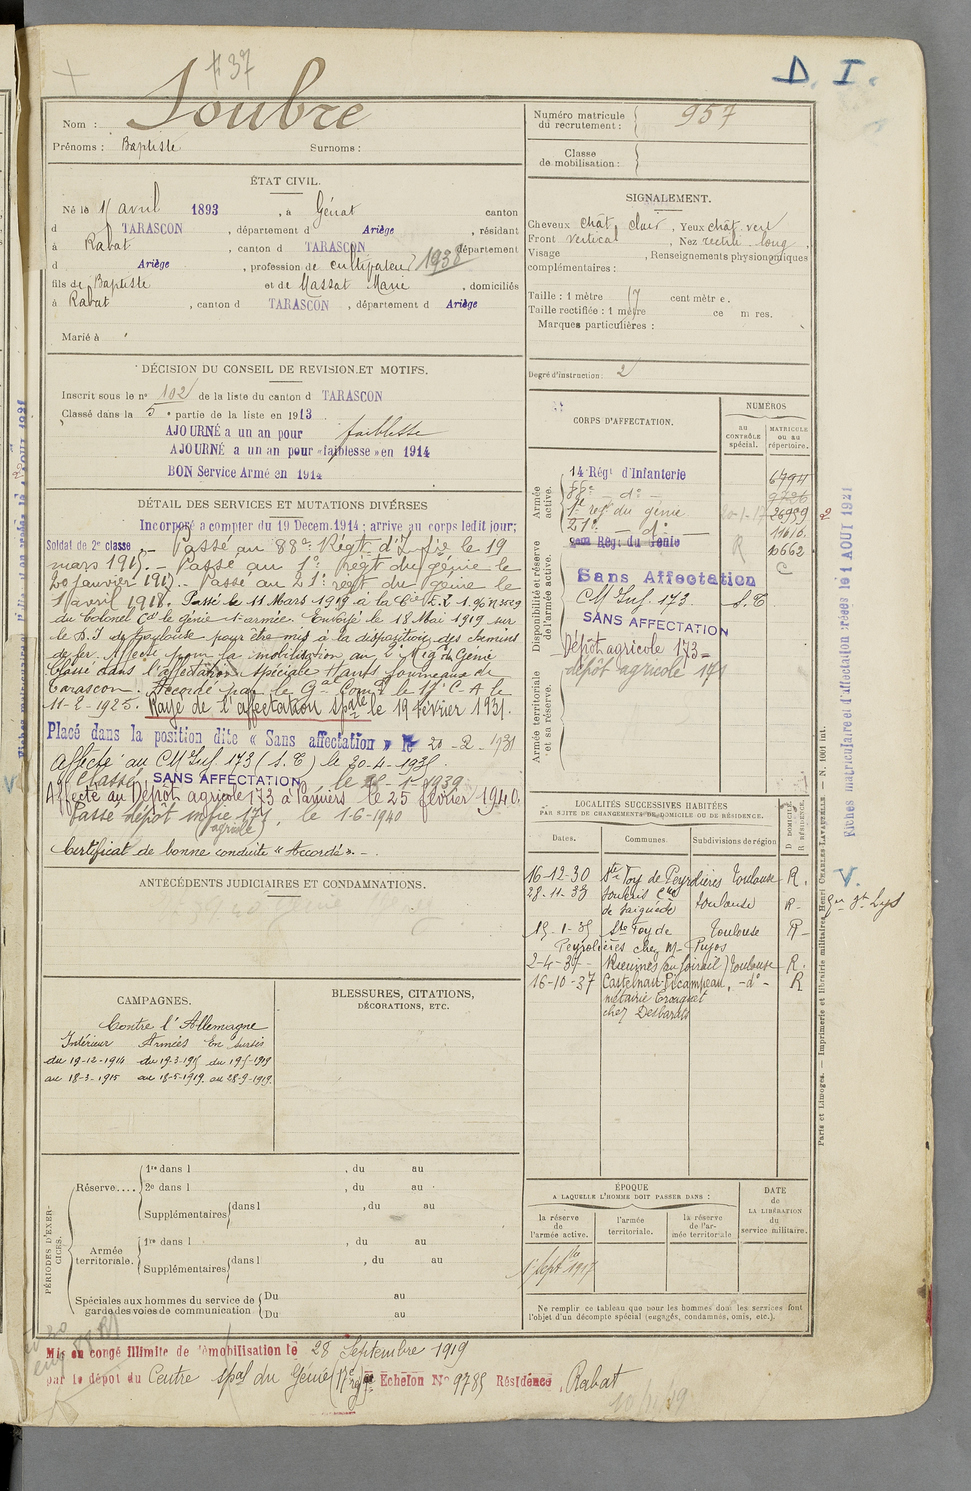 # 37
D. I.
Nom : Soubre
Prénoms : Baptiste Surnoms :
Numéro matricule du recrutement : 957
Classe de mobilisation :
ÉTAT CIVIL.
Né le avril 1893, à Génat canton
d TARASCON, département d Ariège, résidant
à Rabat, canton d TARASCON département
d Ariège, profession de cultivateur 1938
fils de Baptiste et de Massat Marie, domiciliés
à Rabat, canton d TARASCON, département d Ariège
Marié à
SIGNALEMENT.
Cheveux chât clair, Yeux chât. vert
Front vertical, Nez rectil. long,
Visage, Renseignements physionomiques
complémentaires :
Taille : 1 mètre cent mètre.
Taille rectifiée : 1 mètre ce m res.
Marques particulières :
Degré d'instruction : 2
DÉCISION DU CONSEIL DE REVISION ET MOTIFS.
Inscrit sous le n° 102 de la liste du canton d TARASCON
Classé dans la 5e partie de la liste en 1913
AJOURNÉ a un an pour faiblesse
AJOURNÉ a un an pour «faiblesse» en 1914
BON Service Armé en 1914
DÉTAIL DES SERVICES ET MUTATIONS DIVERSES
Incorporé a compter du 19 Décem. 1914 ; arrive au corps ledit jour;
Soldat de 2e classe. – Passé au 88e Régt d'Infie le 19
mars 1915. – Passé au 1er Régt du génie le
20 janvier 1917. – Passé au 21e régt du génie le
1 avril 1918. Passé le 11 Mars 1919 à la Cie
du Colonel Ct le génie 1e armée. Envoyé le 18 Mai 1919 sur
le D.I de Toulouse pour être mis à la disposition des chemins
de fer. Affecté pour la mobilisation au 2e Rég du Génie
Classé dans l'affectation spéciale Hauts fourneaux de
Tarascon. Accordé par le Gal Comt le 17e C.A le
11-2-1925. Rayé de l'affectation spale le 19 février 1931.
Placé dans la position dite « Sans affectation » le 20-2-1931
Affecté au CM Inf. 173 (S.T) le 30-4-1935
Classé SANS AFFECTATION, le 1-1939
Affecté au Dépôt agricole 173 à Pamiers le 25 février 1940.
Passé dépôt infie 171 (agricole), le 1-6-1940
Certificat de bonne conduite « Accordé ». –
CORPS D'AFFECTATION.
NUMÉROS
au CONTRÔLE spécial.
MATRICULE ou au répertoire.
Armée active.
14e Régt d'Infanterie 6794
88e – d° – 9726
1er reg. du génie 20-1-17 26959
21e – d° – 11616
2eme Rég. du Génie R 10662
Disponibilité et réserve de l'armée active.
Sans Affectation C
CM Inf. 173. S.T
SANS AFFECTATION
Armée territoriale et sa réserve.
Dépôt agricole 173
dépôt agricole 171
LOCALITÉS SUCCESSIVES HABITÉES
PAR SUITE DE CHANGEMENTS DE DOMICILE OU DE RÉSIDENCE.
Dates. Communes Subdivisions de région
D DOMICILE. R RÉSIDENCE.
16-12-30 Ste Foy de Peyrolières Toulouse R.
28-11-33 de Saiguède toulouse R – St Lys
15-1-35 Ste Foy de Toulouse R –
Peyrolières chez Mr Pujos
2-4-37 Rieumes Toulouse R.
16-10-37 Castelnau-Picampeau, – d° – R
métairie
chez Desbarats
ANTÉCÉDENTS JUDICIAIRES ET CONDAMNATIONS.
CAMPAGNES.
Contre l'Allemagne
Intérieur Armées En sursis
du 19-12-1914 du 19-3-1915 du 19-5-1919
au 18-3-1915 au 18-5-1919 au 28-9-1919.
BLESSURES, CITATIONS,
DÉCORATIONS, ETC.
PÉRIODES D'EXERCICES.
Réserve.... 1re dans l , du au
2e dans l , du au
Supplémentaires dans l , du au
Armée territoriale. 1re dans l , du au
Supplémentaires dans l , du au
Spéciales aux hommes du service de garde des voies de communication Du au
Du au
ÉPOQUE
A LAQUELLE L'HOMME DOIT PASSER DANS :
la réserve de l'armée active.
l'armée territoriale.
la réserve de l'armée territoriale
DATE de LA LIBÉRATION du service militaire.
1er Sept 1917
Ne remplir ce tableau que pour les hommes dont les services font
l'objet d'un décompte spécial (engagés, condamnés, omis, etc.).
Mis en congé illimité de démobilisation le 28 Septembre 1919
par le dépôt du Centre spal du Génie (17e rg) Echelon N° 9785 Résidence, Rabat
Fiches matriculaire et d'affectation créées le 1 AOUT 1921
Paris et Limoges. — Imprimerie et librairie militaires Henri CHARLES-LAVAUZELLE — N. 1001 int.
V.